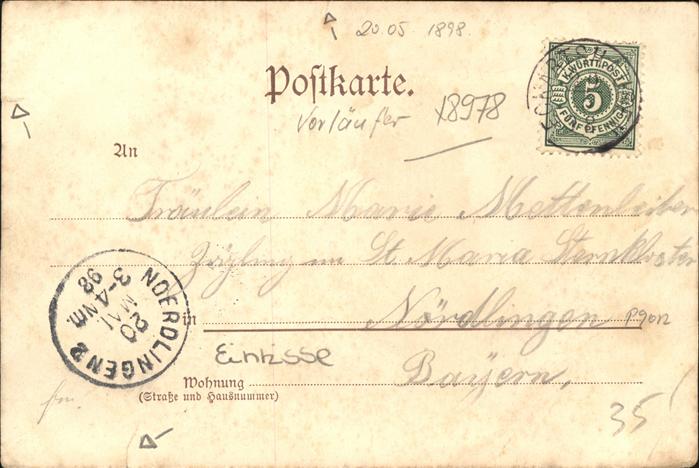 20.05 1898.
Postkarte.
K. WÜRTT. POST
5
FÜNF PFENNIG
Vorläufer 18978
An
Fräulein Marie Mettenleiter
Zögling im St. Maria Sternkloster
in Nördlingen
P90n
NOERDLINGEN 2
20 MAI
3-4 Nm.
98
Einrisse
Bayern,
Wohnung
(Straße und Hausnummer)
35